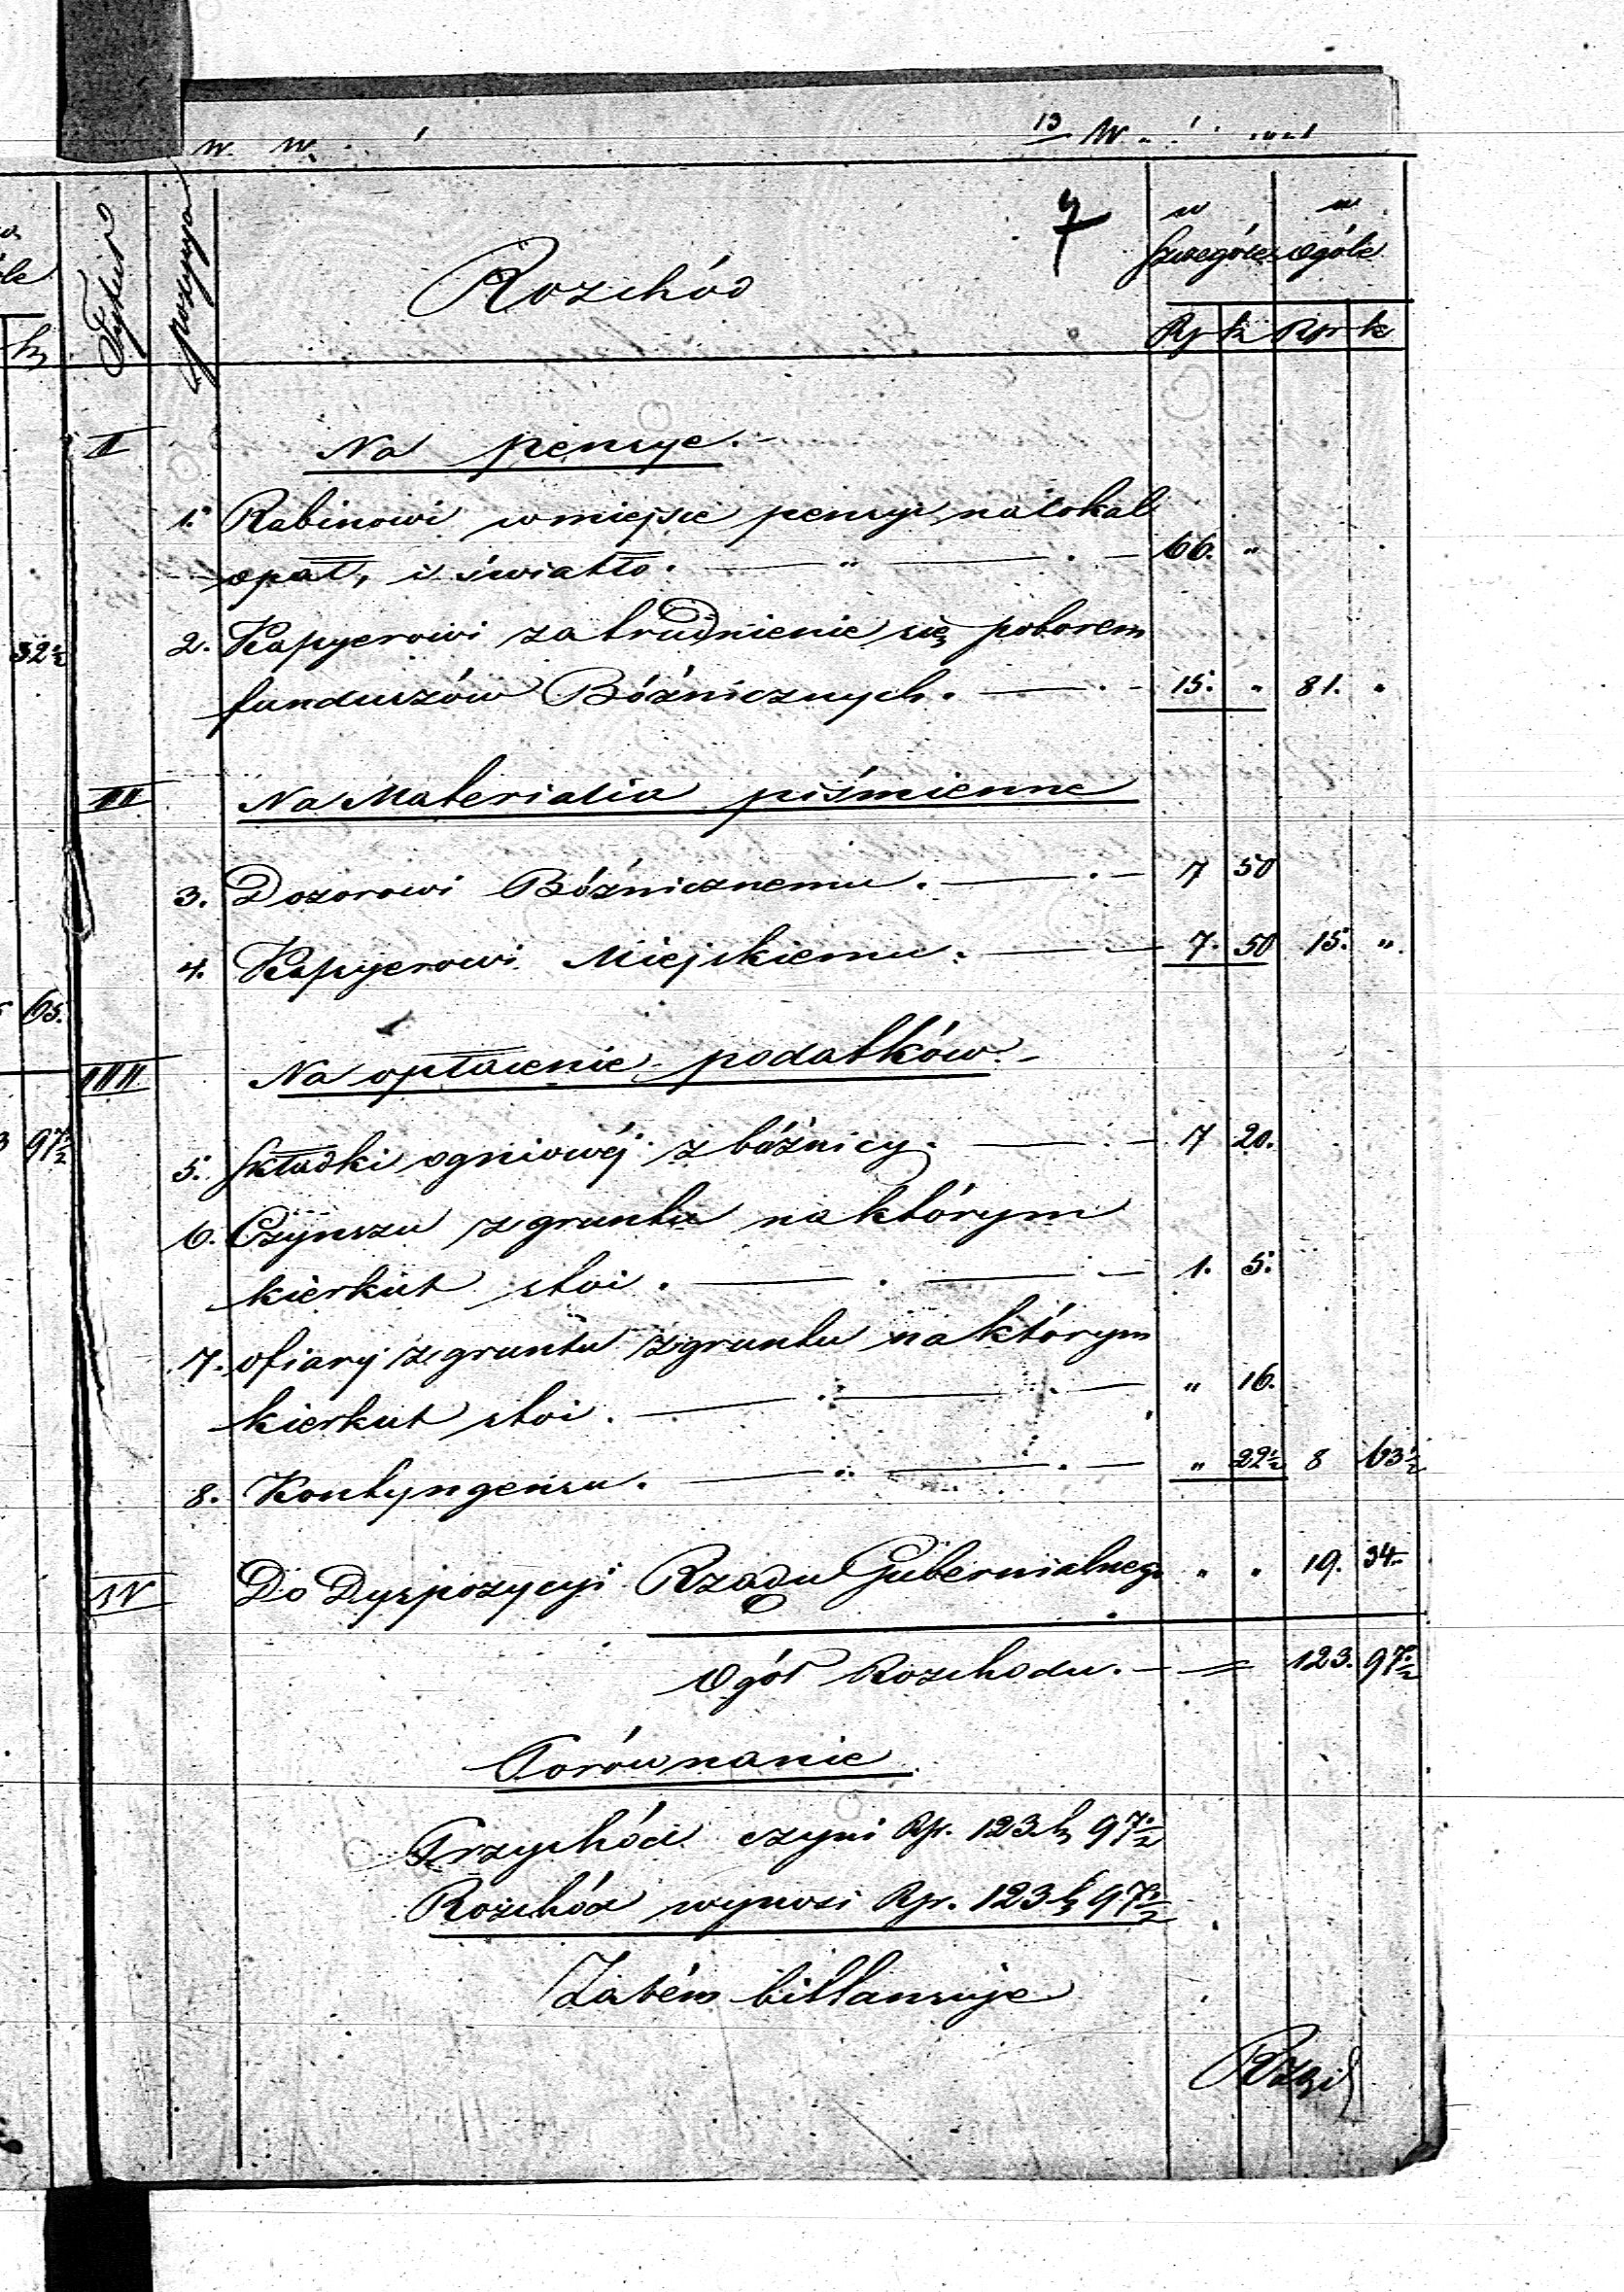 7
Tytuł pozycya Rozchód w Szczególe w Ogóle
Rs k Rsr k
I Na pensye.
1. Rabinowi w miejsce pensyi na lokal
opał, i światło. 66. "
2. Kassyerowi zatrudnienie się poborem
funduszów Bóżnicznych. 15. " 81. "
II Na Materialia piśmienne
3. Dozorowi Bóżnicznemu. 7 50
4. Kassyerowi Miejskiemu. 7. 50 15. "
III Na opłacenie podatków.
5. Składki ogniowéj z bóżnicy. 7 20.
6. Czynszu z gruntu na którym
kierkut stoi. 1. 5.
7. ofiary z gruntu z gruntu na którym
kierkut stoi. " 16.
8. Kontyngensu. " 22½ 8 63½
IV Do Dyspozycyi Rządu Gubernialnego " " 19. 34
Ogół Rozchodu. 123. 97½
Porównanie
Przychód czyni Rsr. 123 k 97½
Rozchód wynosi Rsr. 123 k 97½
Zatém billansuje